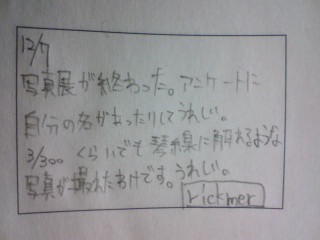 12/7
写真展が終わった。アンケートに
自分の名があったりしてうれしい。
3/300 くらいでも琴線に触れるような
写真が撮れたわけです。うれしい。
rickmer